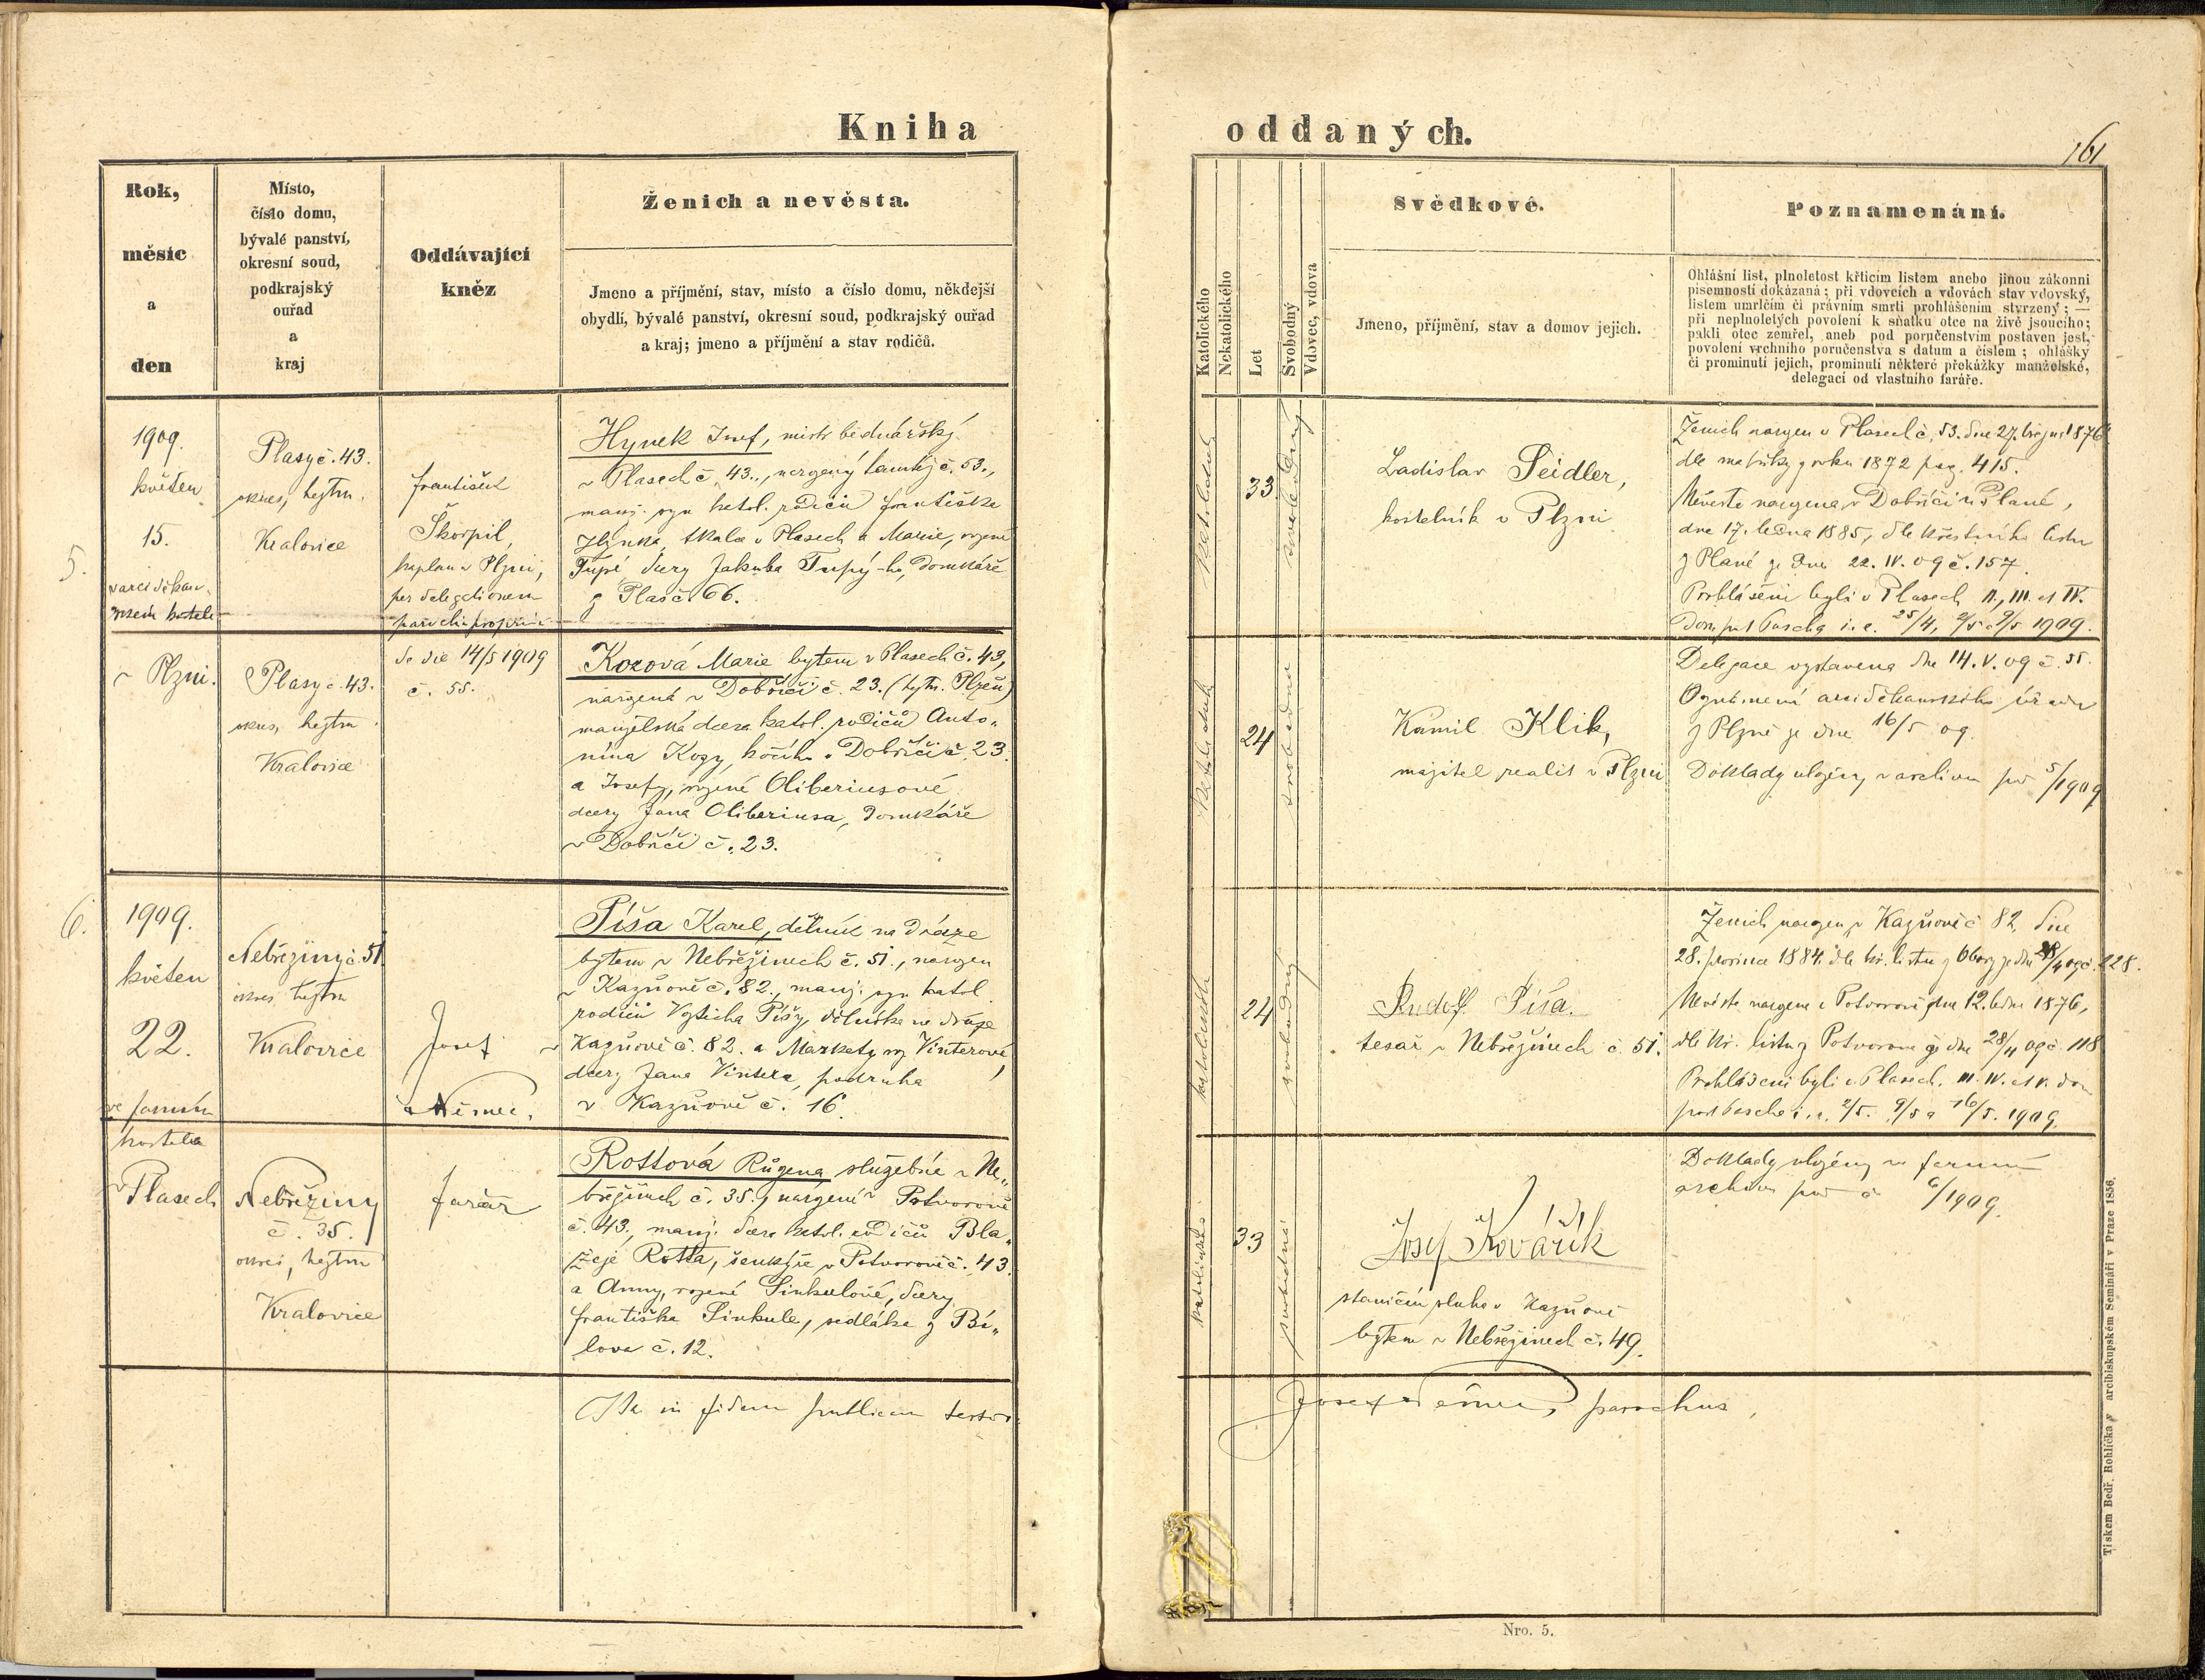 Kniha
oddaných.
161
Rok,
měsíc
a
den
Místo,
číslo domu,
bývalé panství,
okresní soud,
podkrajský
ouřad
a
kraj
Oddávající
kněz
Ženich a nevěsta.
Jmeno a příjmění, stav, místo a číslo domu, někdejší
obydlí, bývalé panství, okresní soud, podkrajský ouřad
a kraj; jmeno a příjmění a stav rodičů.
Katolického
Nekatolického
Let
Svobodný
Vdovec, vdova
Svědkové.
Jmeno, příjmění, stav a domov jejich.
Poznamenání.
Ohlášní list, plnoletost křticím listem anebo jinou zákonní
písemností dokázaná; při vdovcích a vdovách stav vdovský,
listem umrlčím či právním smrti prohlášením stvrzený; —
při neplnoletých povolení k sňatku otce na živě jsoucího;
pakli otec zemřel, aneb pod poručenstvím postaven jest,
povolení vrchního poručenstva s datum a číslem; ohlášky
či prominutí jejich, prominutí některé překážky manželské,
delegací od vlastního faráře.
5.
1909.
květen
15.
v arciděkan.
kostele
v Plzni.
Plasy č. 43.
okres, hejtm.
Kralovice
František
Škorpil,
kaplan v Plzni,
per delegationem
parochi proprii
de die 14/5 1909
č. 55.
Hynek Josef, mistr bednářský
v Plasech č. 43., narozený tamtéž č. 53.,
manž. syn katol. rodičů Františka
Hynka, tkalce v Plasech a Marie, rozené
Tupé dcery Jakuba Tupý-ho, domkáře
z Plas č. 66.
katolické
33
svobodný
Ladislav Seidler,
kostelník v Plzni
Ženich narozen v Plasech č. 53. dne 27. března 1876
dle matriky z roku 1872 pag. 415.
Nevěsta narozena v Dobříči u Plané,
dne 17. ledna 1885, dle křestního listu
z Plané ze dne 22. IV. 09 č. 157.
Prohlášeni byli v Plasech II., III. et IV.
Dom. post Pascha i. e. 25/4, 2/5 a 9/5 1909.
Plasy č. 43.
okres, hejtm.
Kralovice
Kozová Marie bytem v Plasech č. 43,
narozená v Dobříči č. 23. (hejtm. Plzeň)
manželská dcera katol. rodičů Anto-
nína Kozy, kočího v Dobříči č. 23.
a Josefy, rozené Oliberiusové
dcery Jana Oliberiusa, domkáře
v Dobříči č. 23.
24
svobodná
Kamil Klik,
majitel realit v Plzni
Delegace vystavena dne 14. V. 09 č. 55.
Oznámení arciděkanského úřadu
z Plzně ze dne 16/5 09.
Doklady uloženy v archivu pod 5/1909
6.
1909.
květen
22.
ve farním
kostele
v Plasech
Nebřeziny č. 51.
okres, hejtm
Kralovice
Josef
Němec,
farář
Píša Karel, dělník na dráze
bytem v Nebřezinech č. 51., narozen
v Kaznově č. 82., manž. syn katol.
rodičů Vojtěcha Píšy, dělníka na dráze
v Kaznově č. 82. a Markety roz. Vinterové,
dcery Jana Vintera, podruha
v Kaznově č. 16.
katolické
24
svobodný
Rudolf Píša.
tesař v Nebřezinech č. 51.
Ženich narozen v Kaznově č. 82, dne
28. prosince 1884. dle kř. listu z Obory ze dne 28/4 09 č. 228.
Nevěsta narozena v Potvorově dne 12. ledna 1876,
dle kř. listu z Potvorova ze dne 28/4 09 č. 118
Prohlášeni byli v Plasech. III. IV. et V. dom
post Pascha i. e. 2/5. 9/5 a 16/5. 1909
Nebřeziny
č. 35.
okres, hejtm
Kralovice
Rottová Růžena služebná v Ne-
březinech č. 35., narozená v Potvorově
č. 43, manž. dcera katol. rodičů Bla-
žeje Rotta, šenkýře v Potvorově č. 43.
a Anny, rozené Sinkulové, dcery
Františka Sinkule, sedláka z Bí-
lova č. 12.
katolické
33
svobodná
Josef Kovářík
staniční sluha v Kaznově
bytem v Nebřezinech č. 49.
Doklady uloženy ve farním
archivu pod č. 6/1909.
Ita in fidem publicam testor
Josef Němec, parochus,
Nro. 5.
Tiskem Bedř. Rohlíčka v arcibiskupském Semináři v Praze 1856.